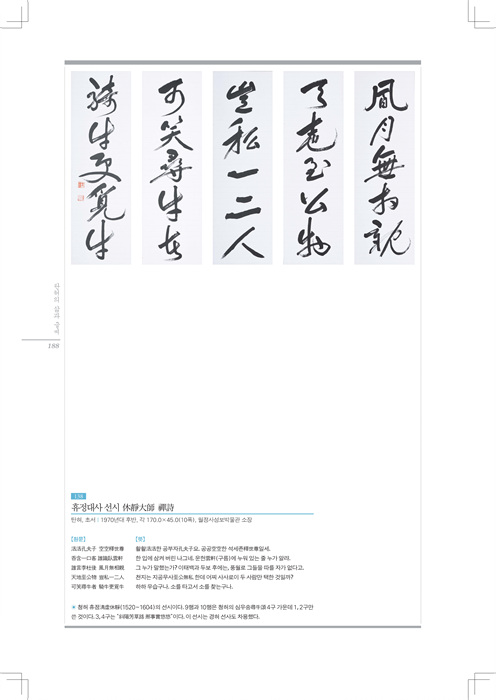 風月無相親
天地至公物
豈私一二人
可笑尋牛者
騎牛更覓牛
188
138
휴정대사 선시 休靜大師 禪詩
탄허, 초서 : 1970년대 후반, 각 170.0×45.0(10폭), 월정사성보박물관 소장
[원문]
活活孔夫子 空空釋世尊
一口客 誰識臥雲軒
誰言李杜後 風月無相親
天地至公物 豈私一二人
可笑尋牛者 騎牛更覓牛
[역]
활활活活한 공부자孔夫子요, 공공空空한 석세존釋世尊일세.
한 입에 삼켜 버린 나그네, 운헌雲軒(구름)에 누워 있는 줄 누가 알랴.
그 누가 말했는가? 이태백과 두보 후에는, 풍월로 그들을 따를 자가 없다고.
천지는 지공무사至公無私 한데 어찌 사사로이 두 사람만 택한 것일까?
하하 우습구나. 소를 타고서 소를 찾는구나.
※ 청허 휴정淸虛休靜(1520~1604)의 선시이다. 9행과 10행은 청허의 심우송尋牛頌 4구 가운데 1, 2구만
쓴 것이다. 3, 4구는 “斜陽芳草路 那事實悠悠” 이다. 이 선시는 경허 선사도 차용했다.